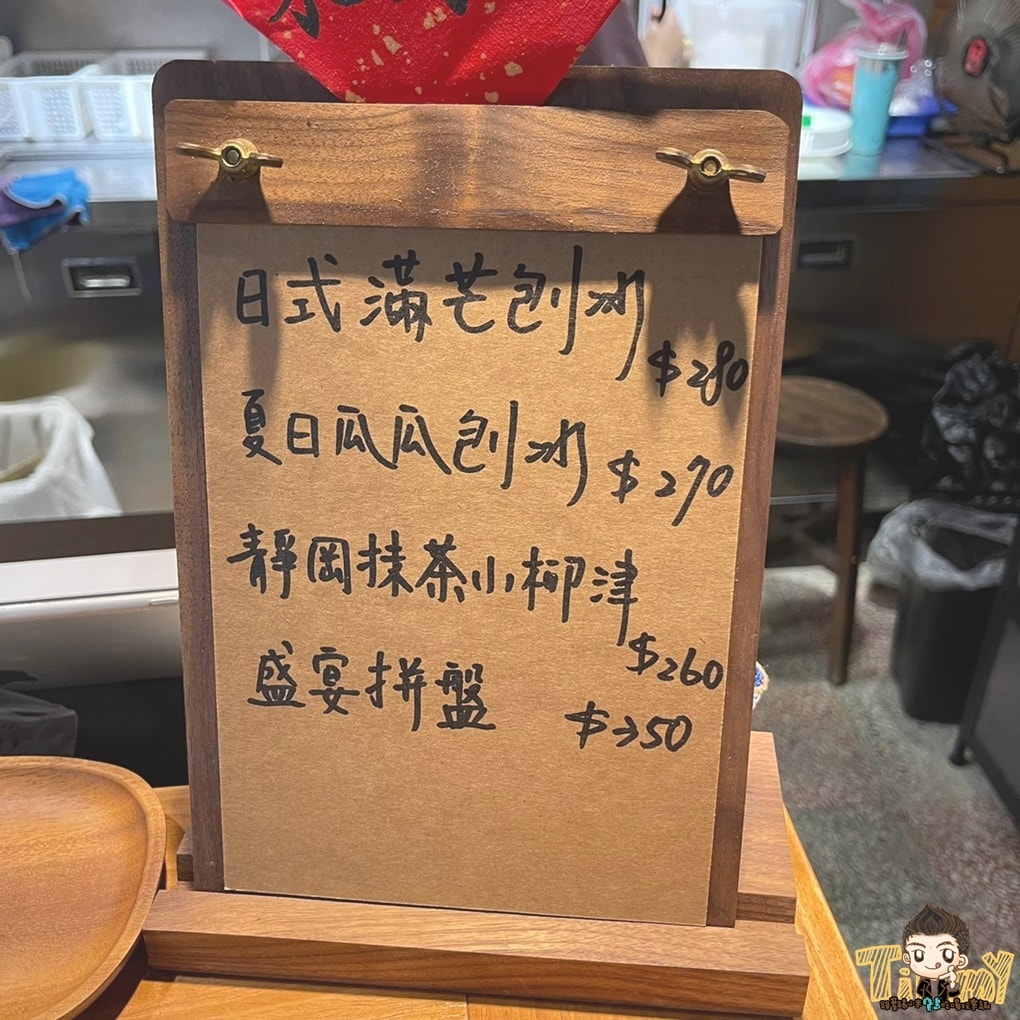 日式滿芒刨冰
$280
夏日瓜瓜刨冰 $270
靜岡抹茶小柳津
$260
盛宴拼盤 $350
Timmy